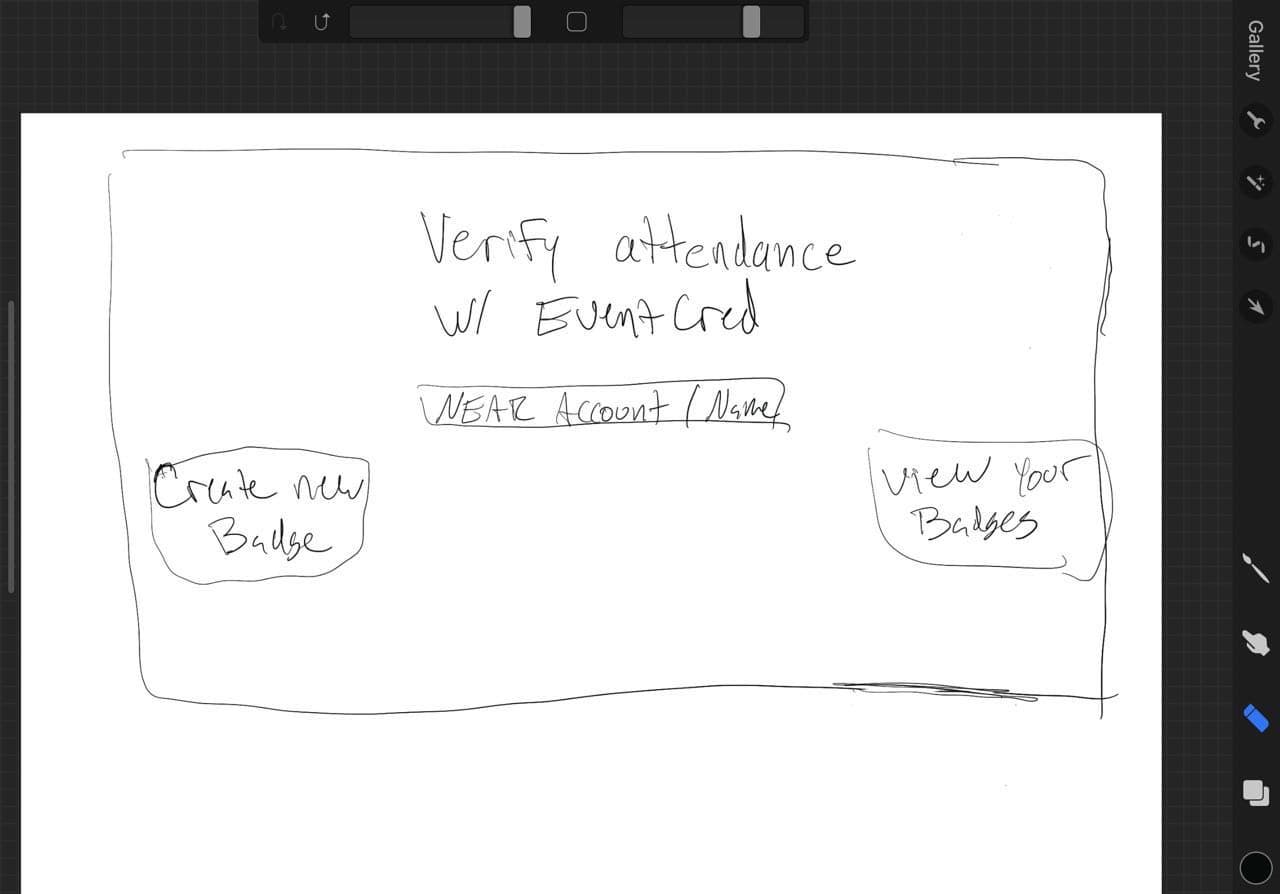 Gallery
Verify attendance
w/ EventCred
NEAR Account / Name
Create new
Badge
View Your
Badges